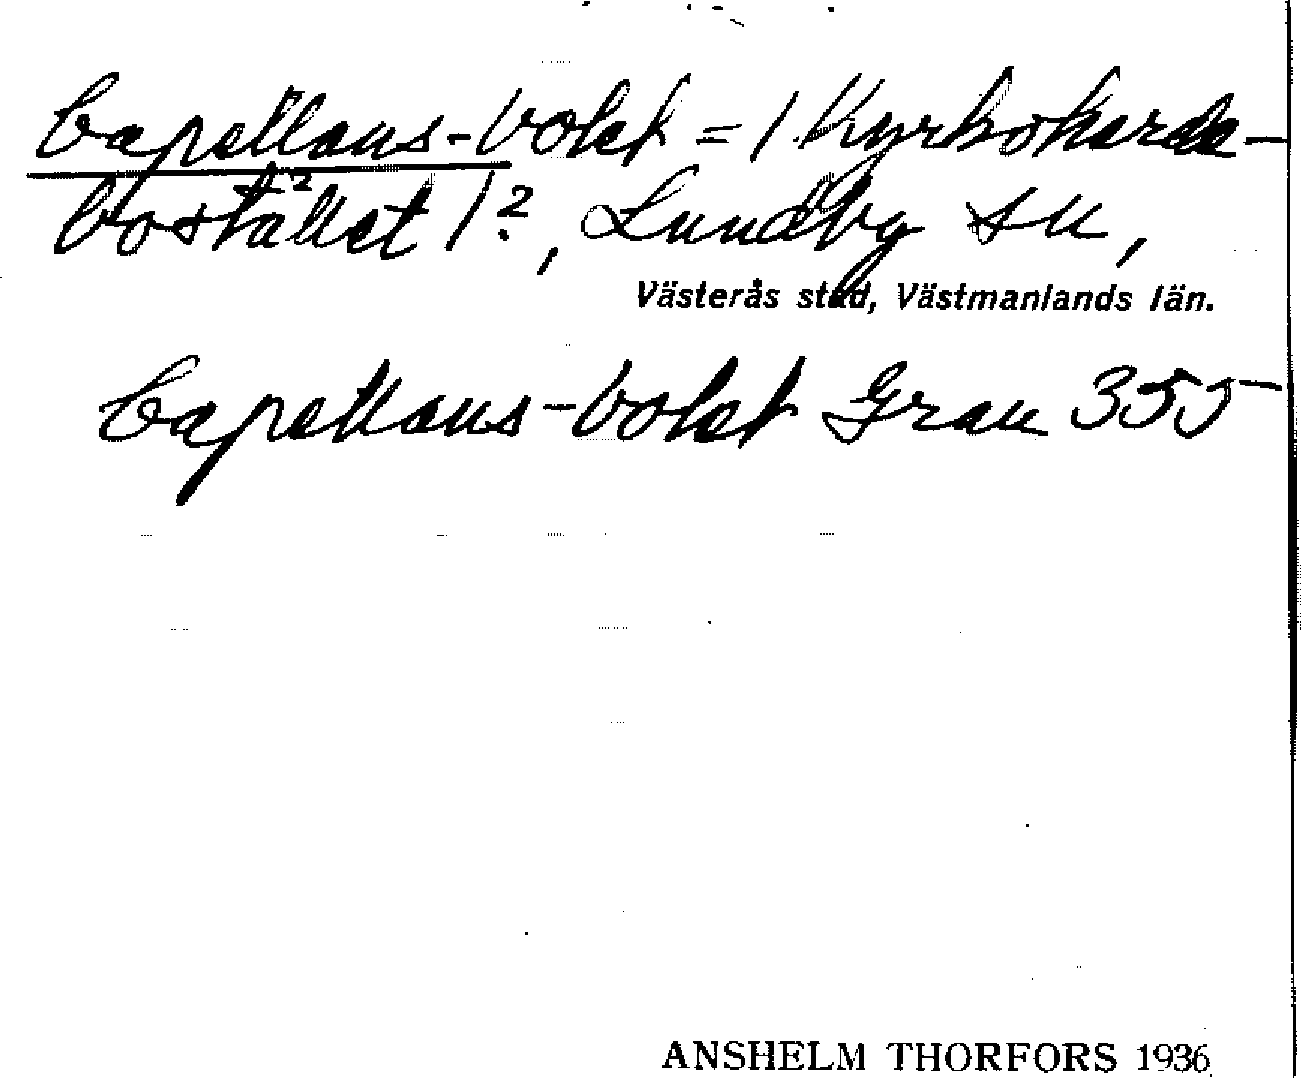 Capellans-bolet = / Kyrkoherde-
bostället /?, Lundby sn,
Västerås stad, Västmanlands län.
Capellans-bolet Grau 355
ANSHELM THORFORS 1936